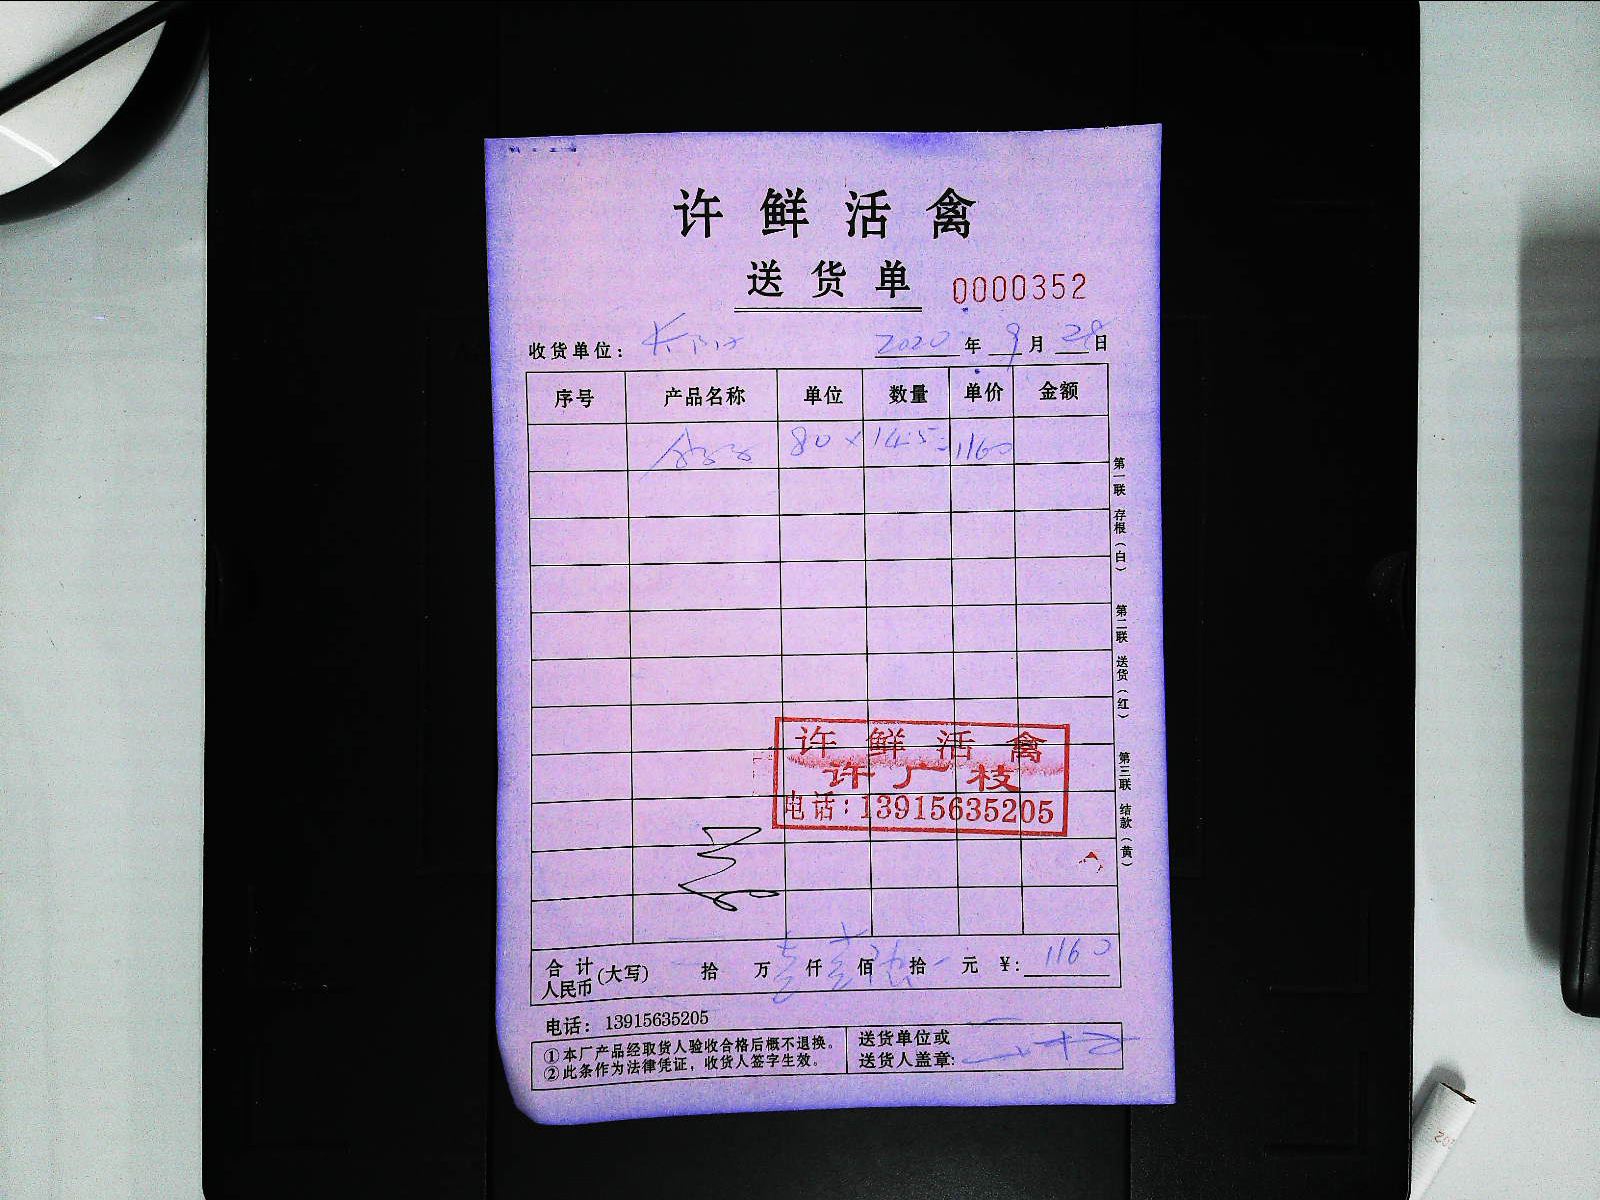 许鲜活禽
送货单 0000352
收货单位： 2020年9月28日
序号 产品名称 单位 数量 单价 金额
80 × 14.5 = 1160
许鲜活禽
许厂枝
电话：13915635205
合计人民币(大写) 拾 万 壹 仟 壹 佰 陆 拾 元 ¥：1160
电话：13915635205
①本厂产品经取货人验收合格后概不退换。
②此条作为法律凭证，收货人签字生效。
送货单位或
送货人盖章:
第一联 存根（白）
第二联 送货（红）
第三联 结款（黄）